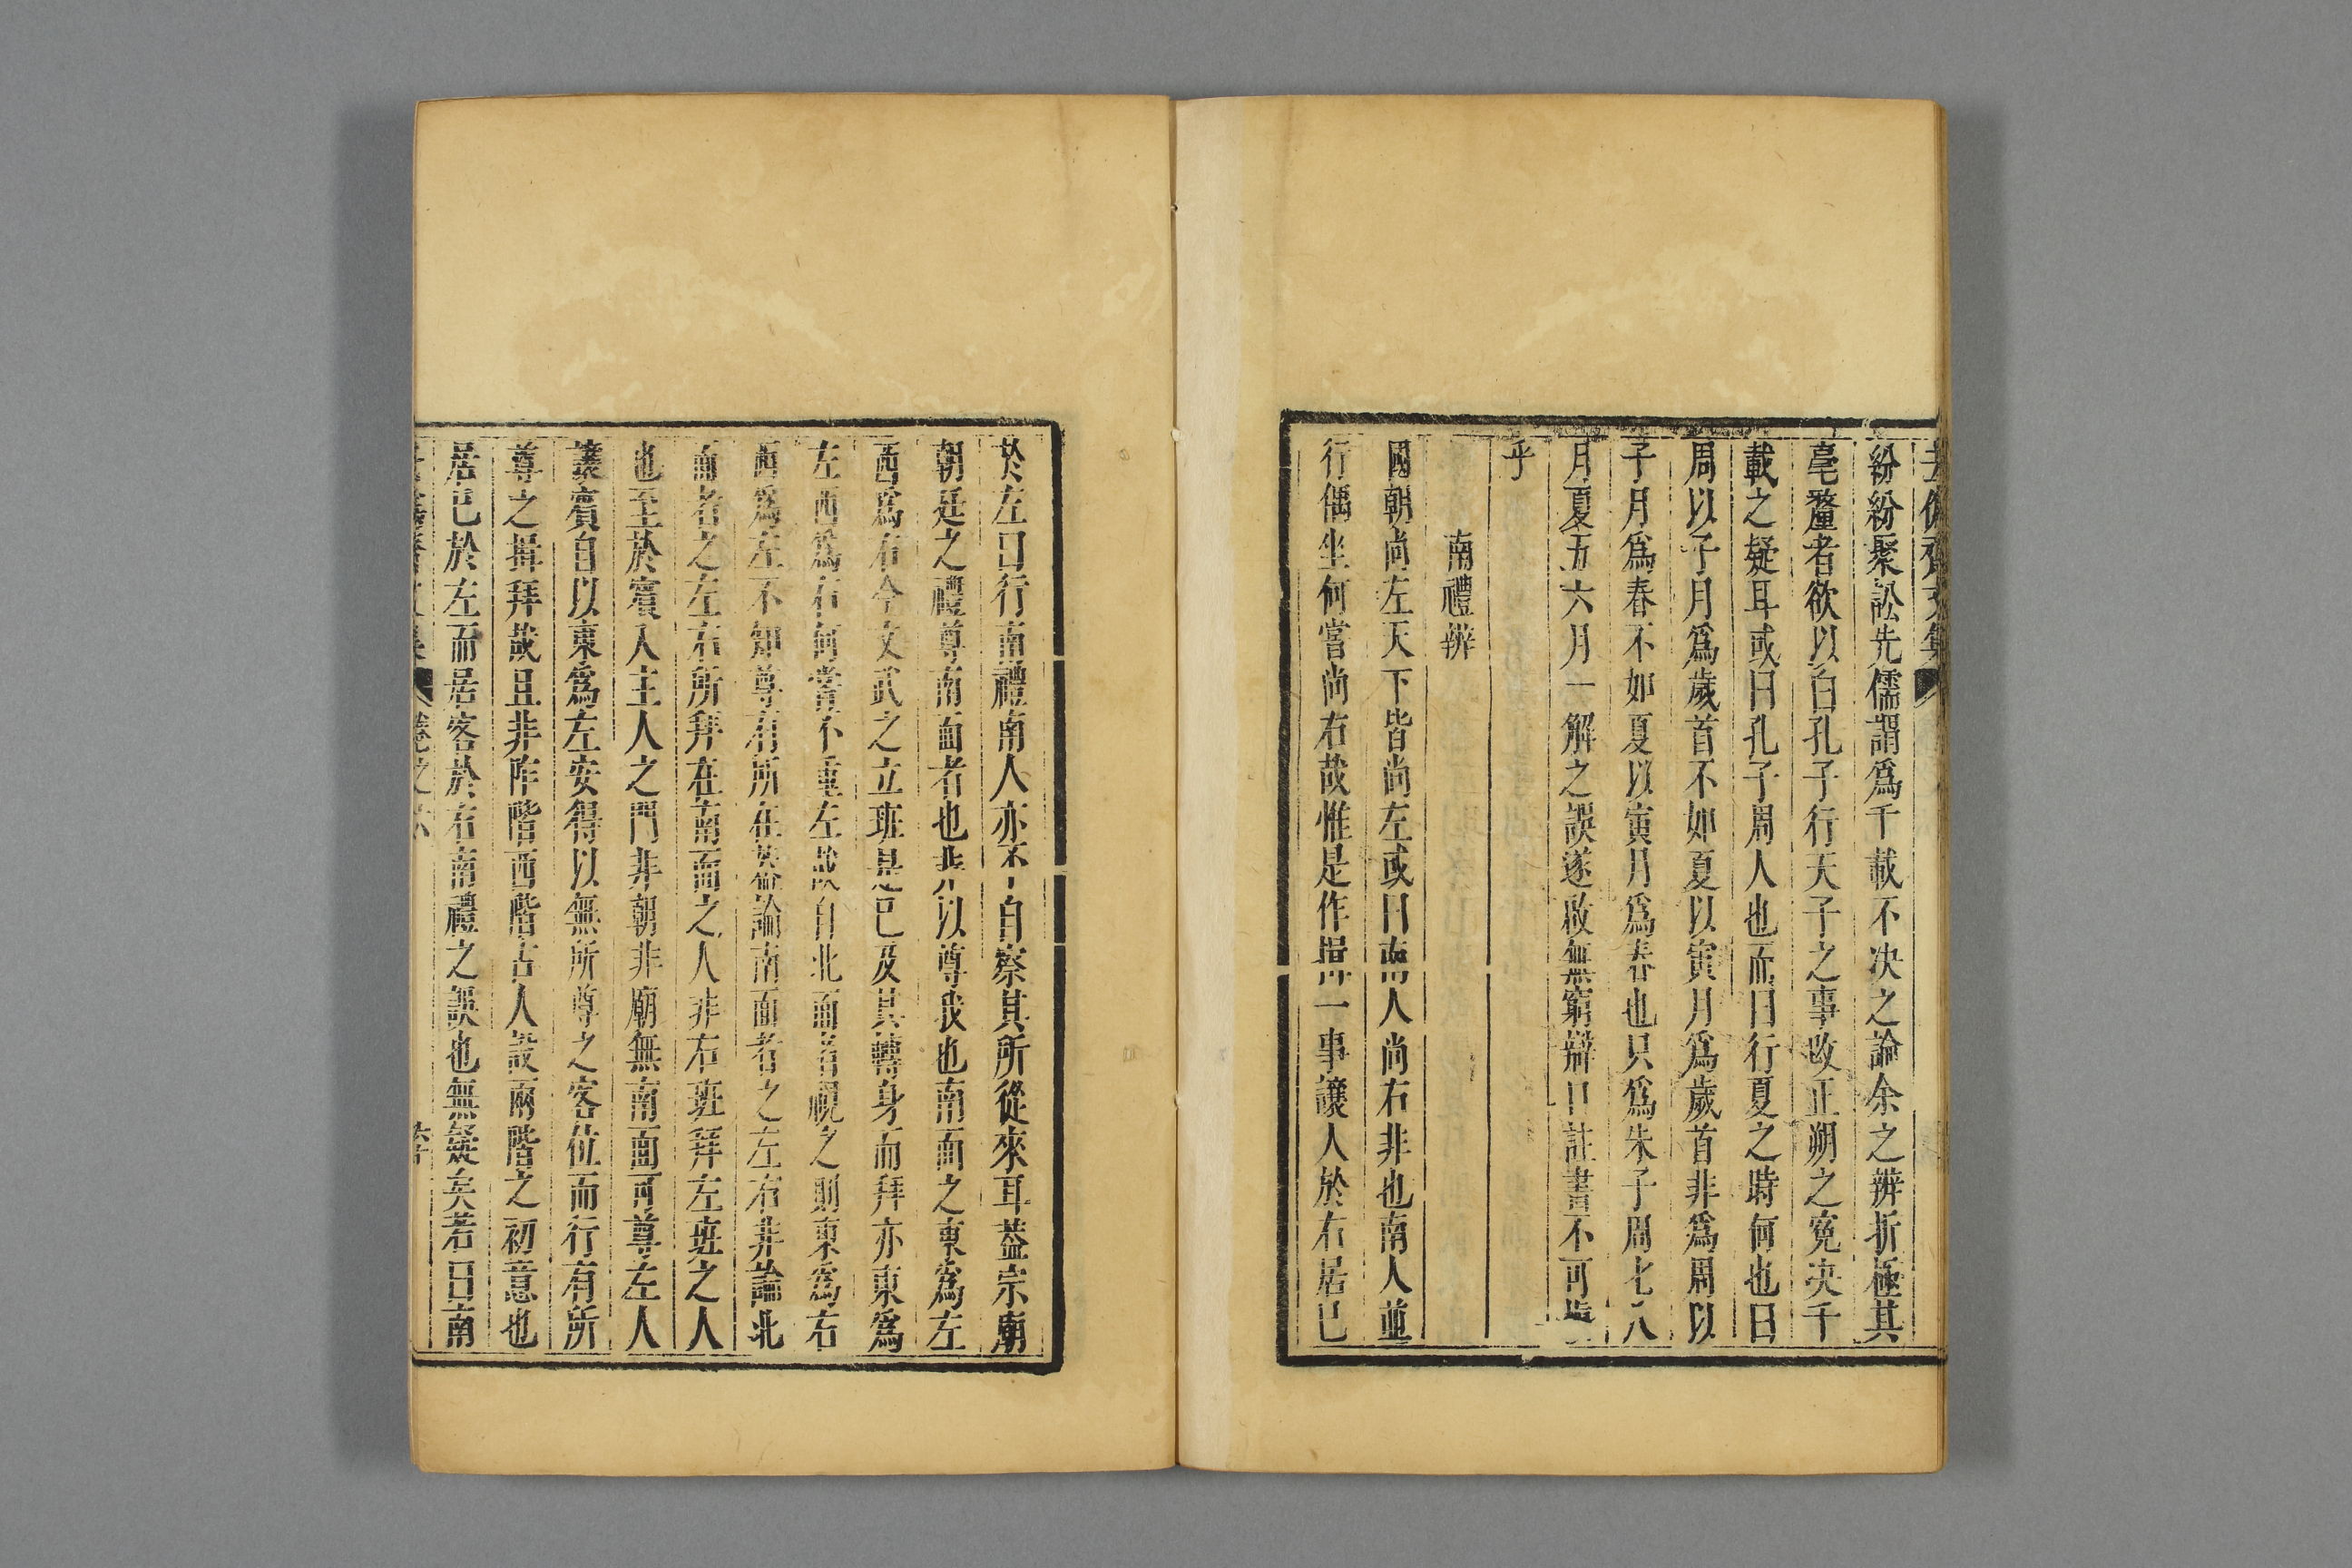 去偽齋文集
紛紛聚訟先儒謂爲千載不决之論余之辨折極其
毫釐者欲以白孔子行天子之事改正朔之寃决千
載之疑耳或曰孔子周人也而曰行夏之時何也曰
周以子月爲歲首不如夏以寅月爲歲首非爲周以
子月爲春不如夏以寅月爲春也只爲朱子周七八
月夏五六月一解之誤遂啟無窮辯口註書不可
乎
南禮辨
國朝尚左天下皆尚左或曰南人尚右非也南人並
行偶坐何嘗尚右哉惟是作揖一事讓人於右居已
於左曰行南禮南人亦不自察其所從來耳葢宗廟
朝廷之禮尊南面者也非以尊我也南面之東爲左
西爲右今文武之立班是已及其轉身而拜亦東爲
左西爲右何嘗不重左哉自北面者視之則東爲右
西爲左不知尊有所在英論南面者之左右非論北
面者之左右所拜在南面之人非右班拜左班之人
也至於賓入主人之門非朝非廟無南面可尊左人
讓賓自以東爲左安得以無所尊之客位而行有所
尊之揖拜哉且非阼階西階古人設兩階之初意也
居已於左而居客於右南禮之誤也無疑矣若曰南
去偽齋文集 卷之六